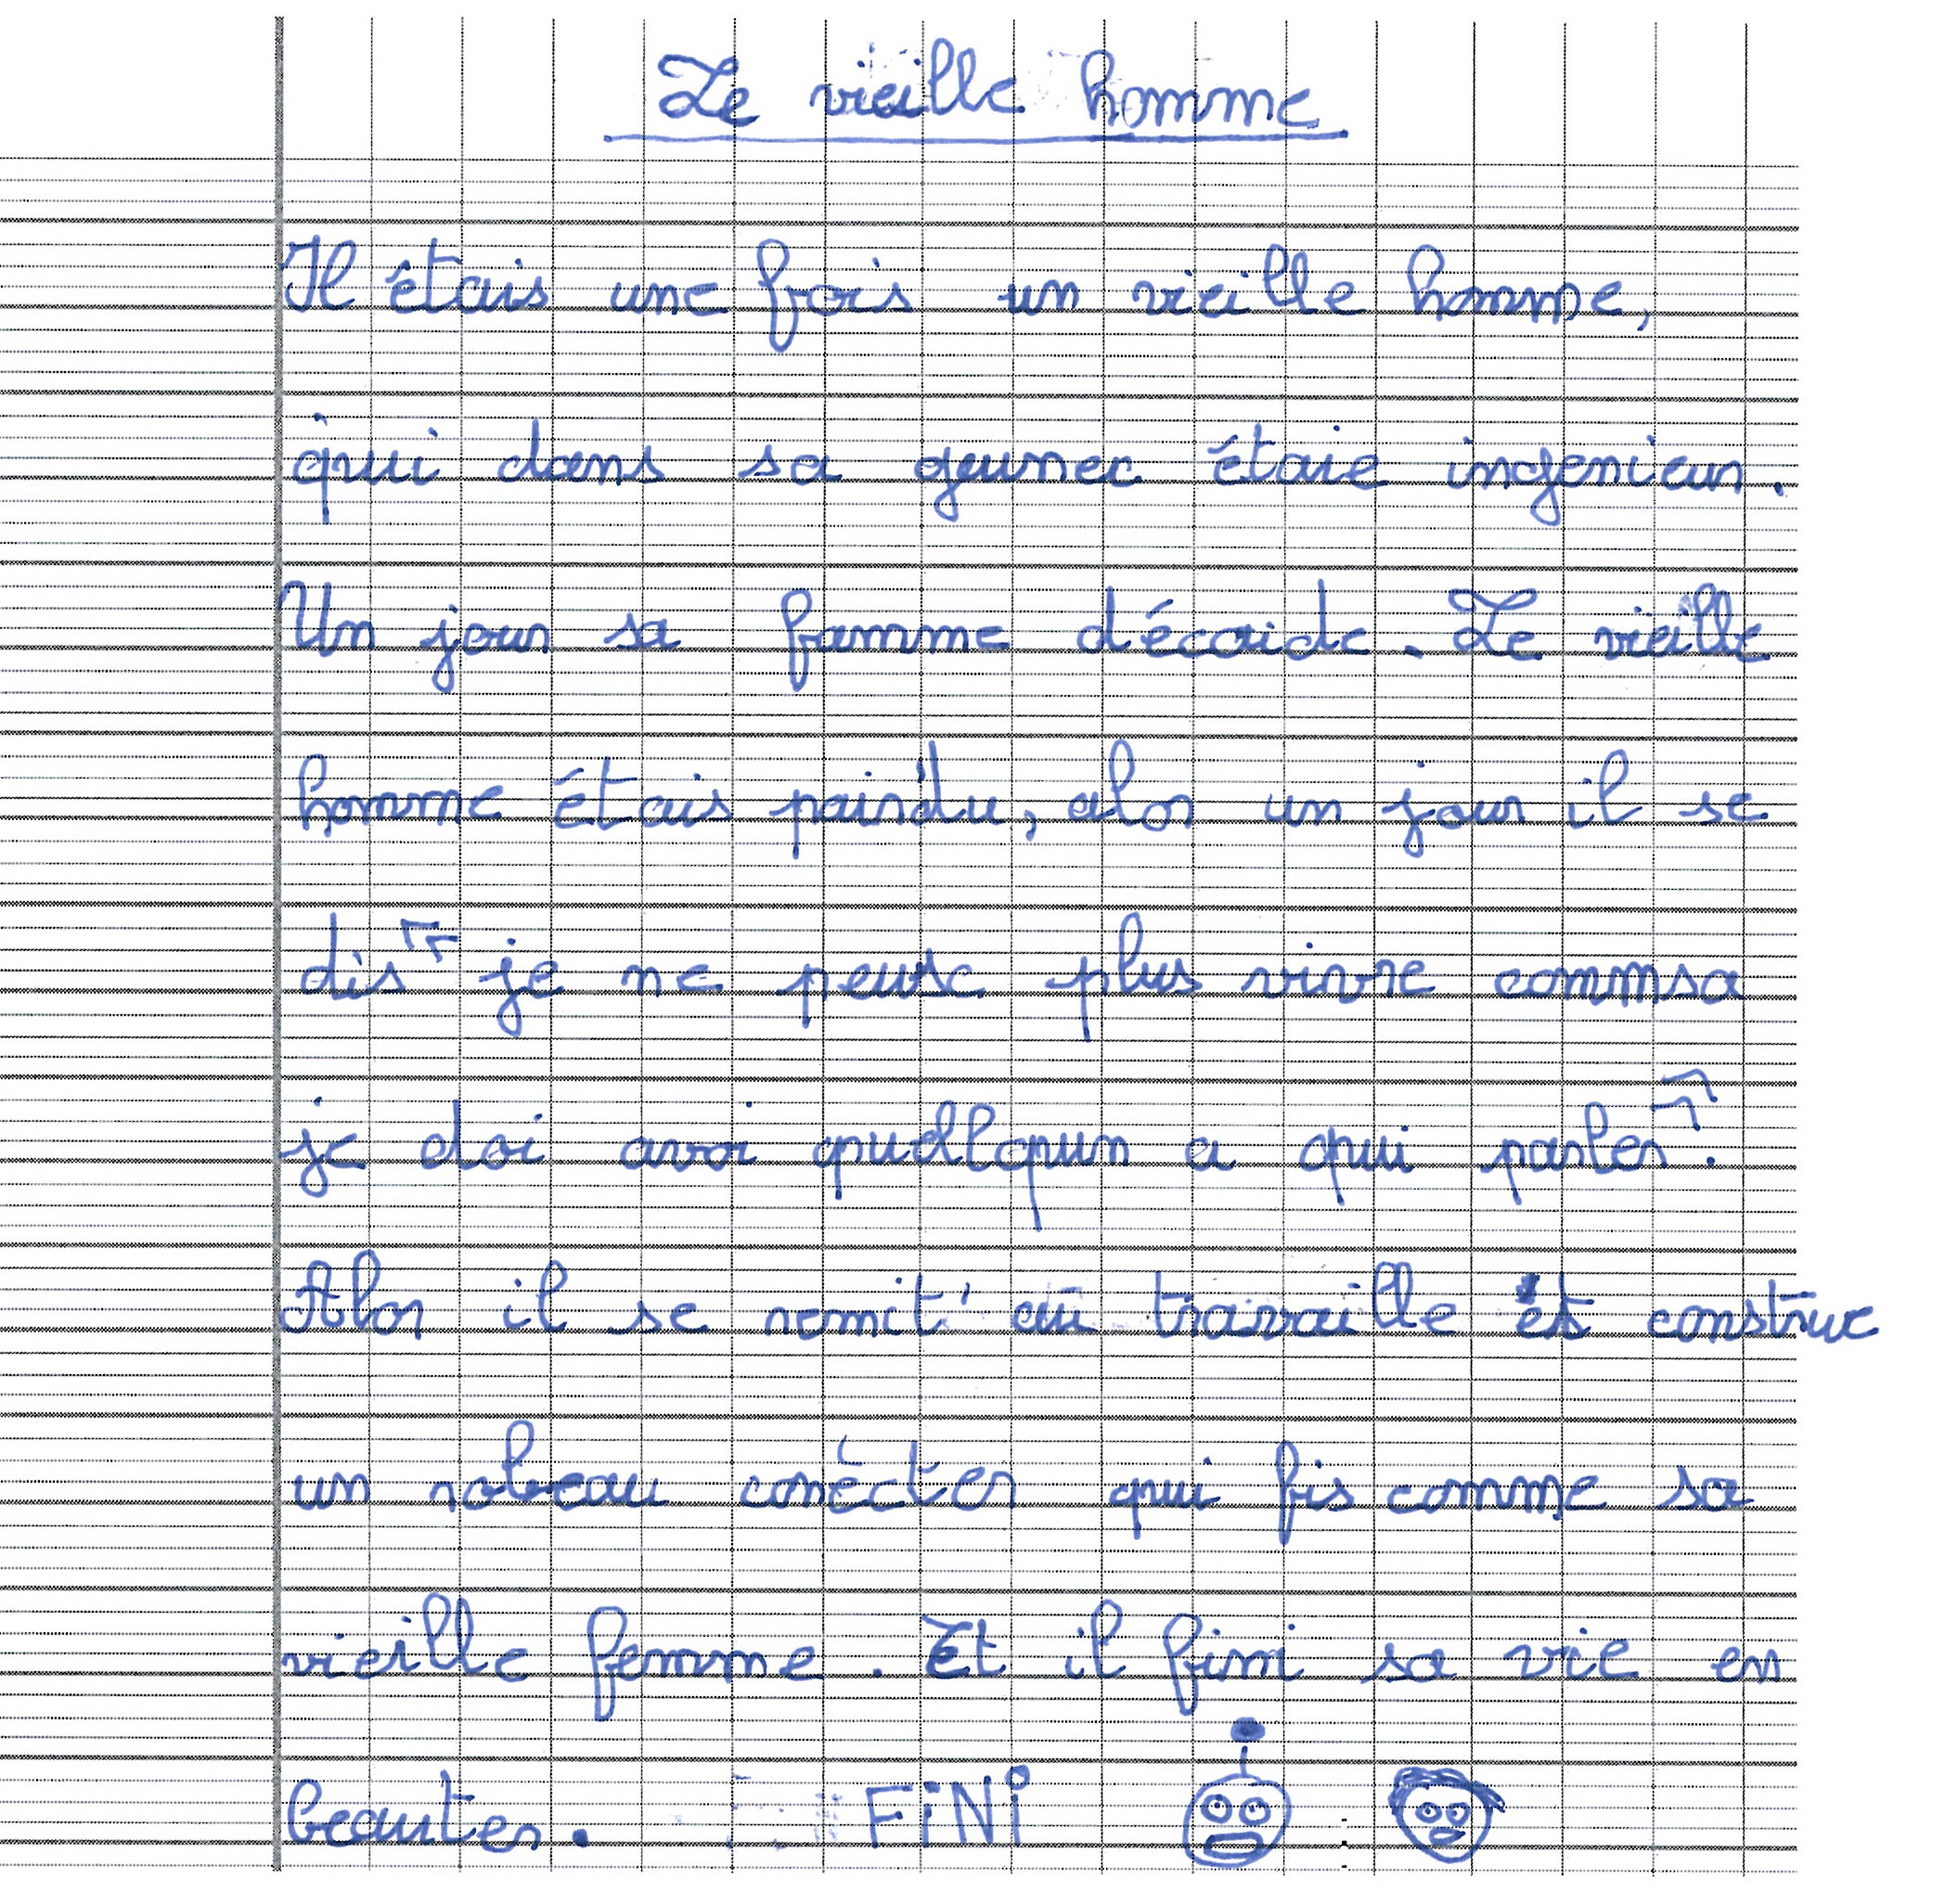 Le vieille homme
Il êtais une frois un vieille homme,
qui dans sa geunec étaie ingenieur.
Un jour sa famme décaide. Le vieille
homme étais paindu, alor un jour il se
dis " je ne peuse plus vivre commsa
je doi avoi quellqun a qui parler".
Alor il se remit au travaille et construe
un robeau conècter qui fis comme sa
vieille femme. Et il fini sa vie en
beauter. FiNi